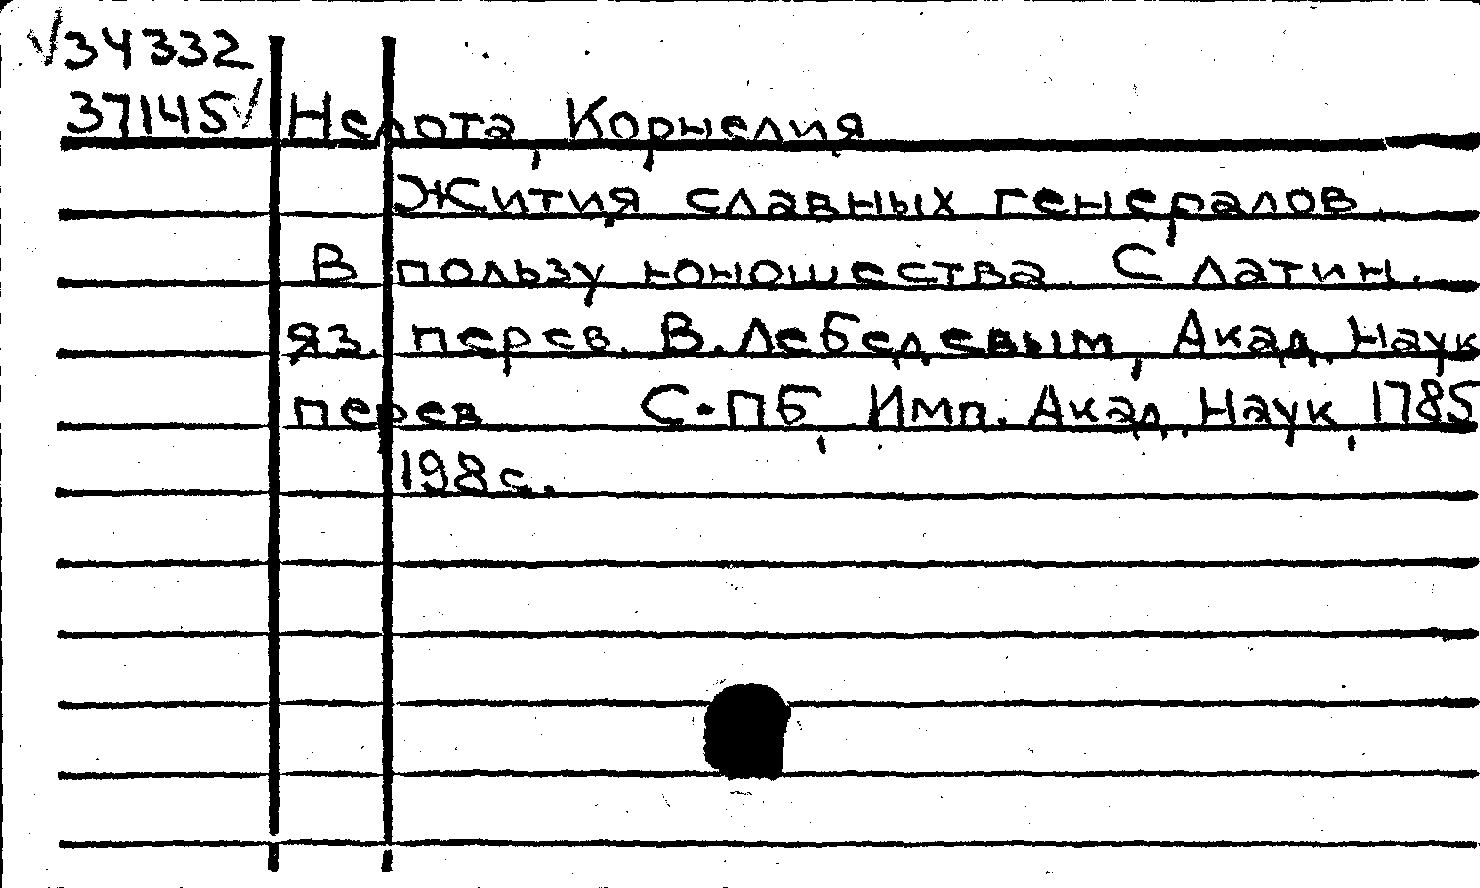 √34332
37145√ Нелота, Корнелия
Жития славных генералов.
В пользу юношества. С латин.
яз. перев. В. Лебедевым, Акад. Наук
перев С-ПБ, Имп. Акад. Наук, 1785
198 с.